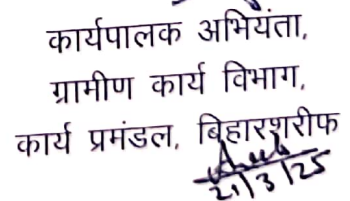 कार्यपालक अभियंता,
ग्रामीण कार्य विभाग,
कार्य प्रमंडल, बिहारशरीफ
21/3/25